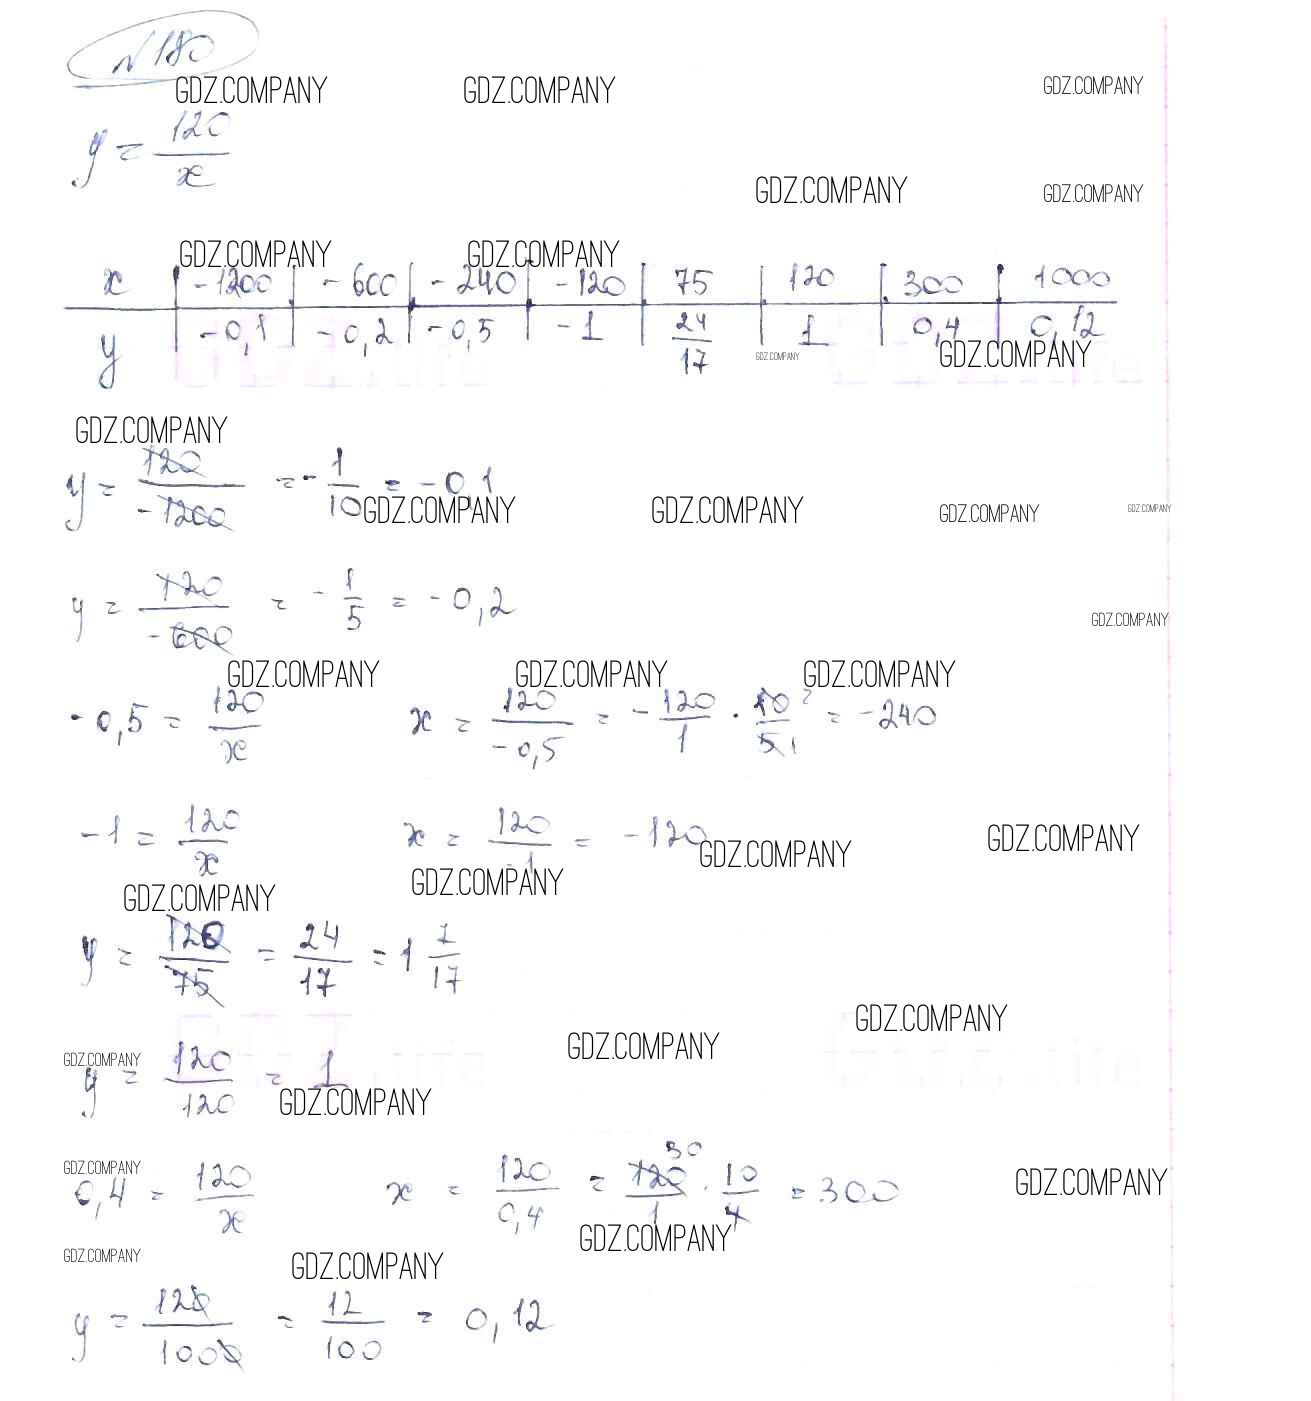 N180
GDZ.COMPANY GDZ.COMPANY GDZ.COMPANY
y = 120/x
GDZ.COMPANY GDZ.COMPANY
GDZ.COMPANY GDZ.COMPANY
x | -1200 | -600 | -240 | -120 | 75 | 120 | 300 | 1000
y | -0,1 | -0,2 | -0,5 | -1 | 24/17 | 1 | 0,4 | 0,12
GDZ.COMPANY GDZ.COMPANY
GDZ.life GDZ.life
GDZ.COMPANY
y = 120/-1200 = -1/10 = -0,1
GDZ.COMPANY GDZ.COMPANY GDZ.COMPANY GDZ.COMPANY
y = 120/-600 = -1/5 = -0,2
GDZ.COMPANY
GDZ.COMPANY GDZ.COMPANY GDZ.COMPANY
-0,5 = 120/x x = 120/-0,5 = -120/1 · 10 2/5 1 = -240
-1 = 120/x x = 120/-1 = -120
GDZ.COMPANY GDZ.COMPANY
GDZ.COMPANY GDZ.COMPANY
y = 120/75 = 24/17 = 1 7/17
GDZ.COMPANY
GDZ.COMPANY GDZ.COMPANY
GDZ.life GDZ.life
y = 120/120 = 1
GDZ.COMPANY
GDZ.COMPANY GDZ.COMPANY
0,4 = 120/x x = 120/0,4 = 120 30/1 · 10/4 = 300
GDZ.COMPANY
GDZ.COMPANY GDZ.COMPANY
y = 120/1000 = 12/100 = 0,12